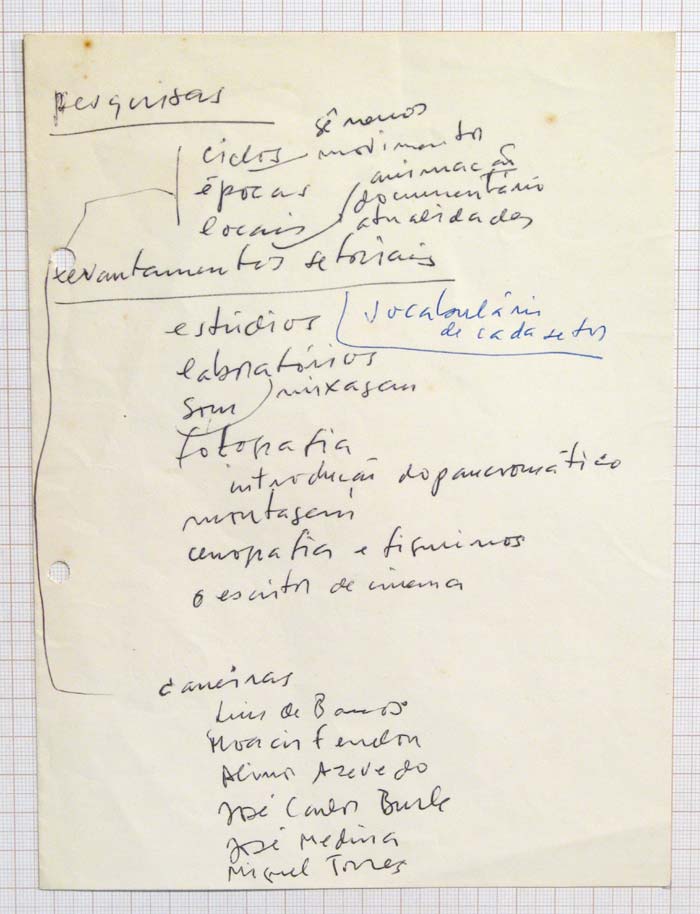 pesquisas
gêneros
ciclos movimentos
épocas animação
documentário
locais atualidades
levantamentos setoriais
estúdios vocabulário
de cada setor
laboratórios
som mixagem
fotografia
introdução do pancromático
montagem
cenografia e figurinos
o escritor de cinema
carreiras
Luis de Barros
Moacir Fenelon
Alinor Azevedo
José Carlos Burle
José Medina
Miguel Torres